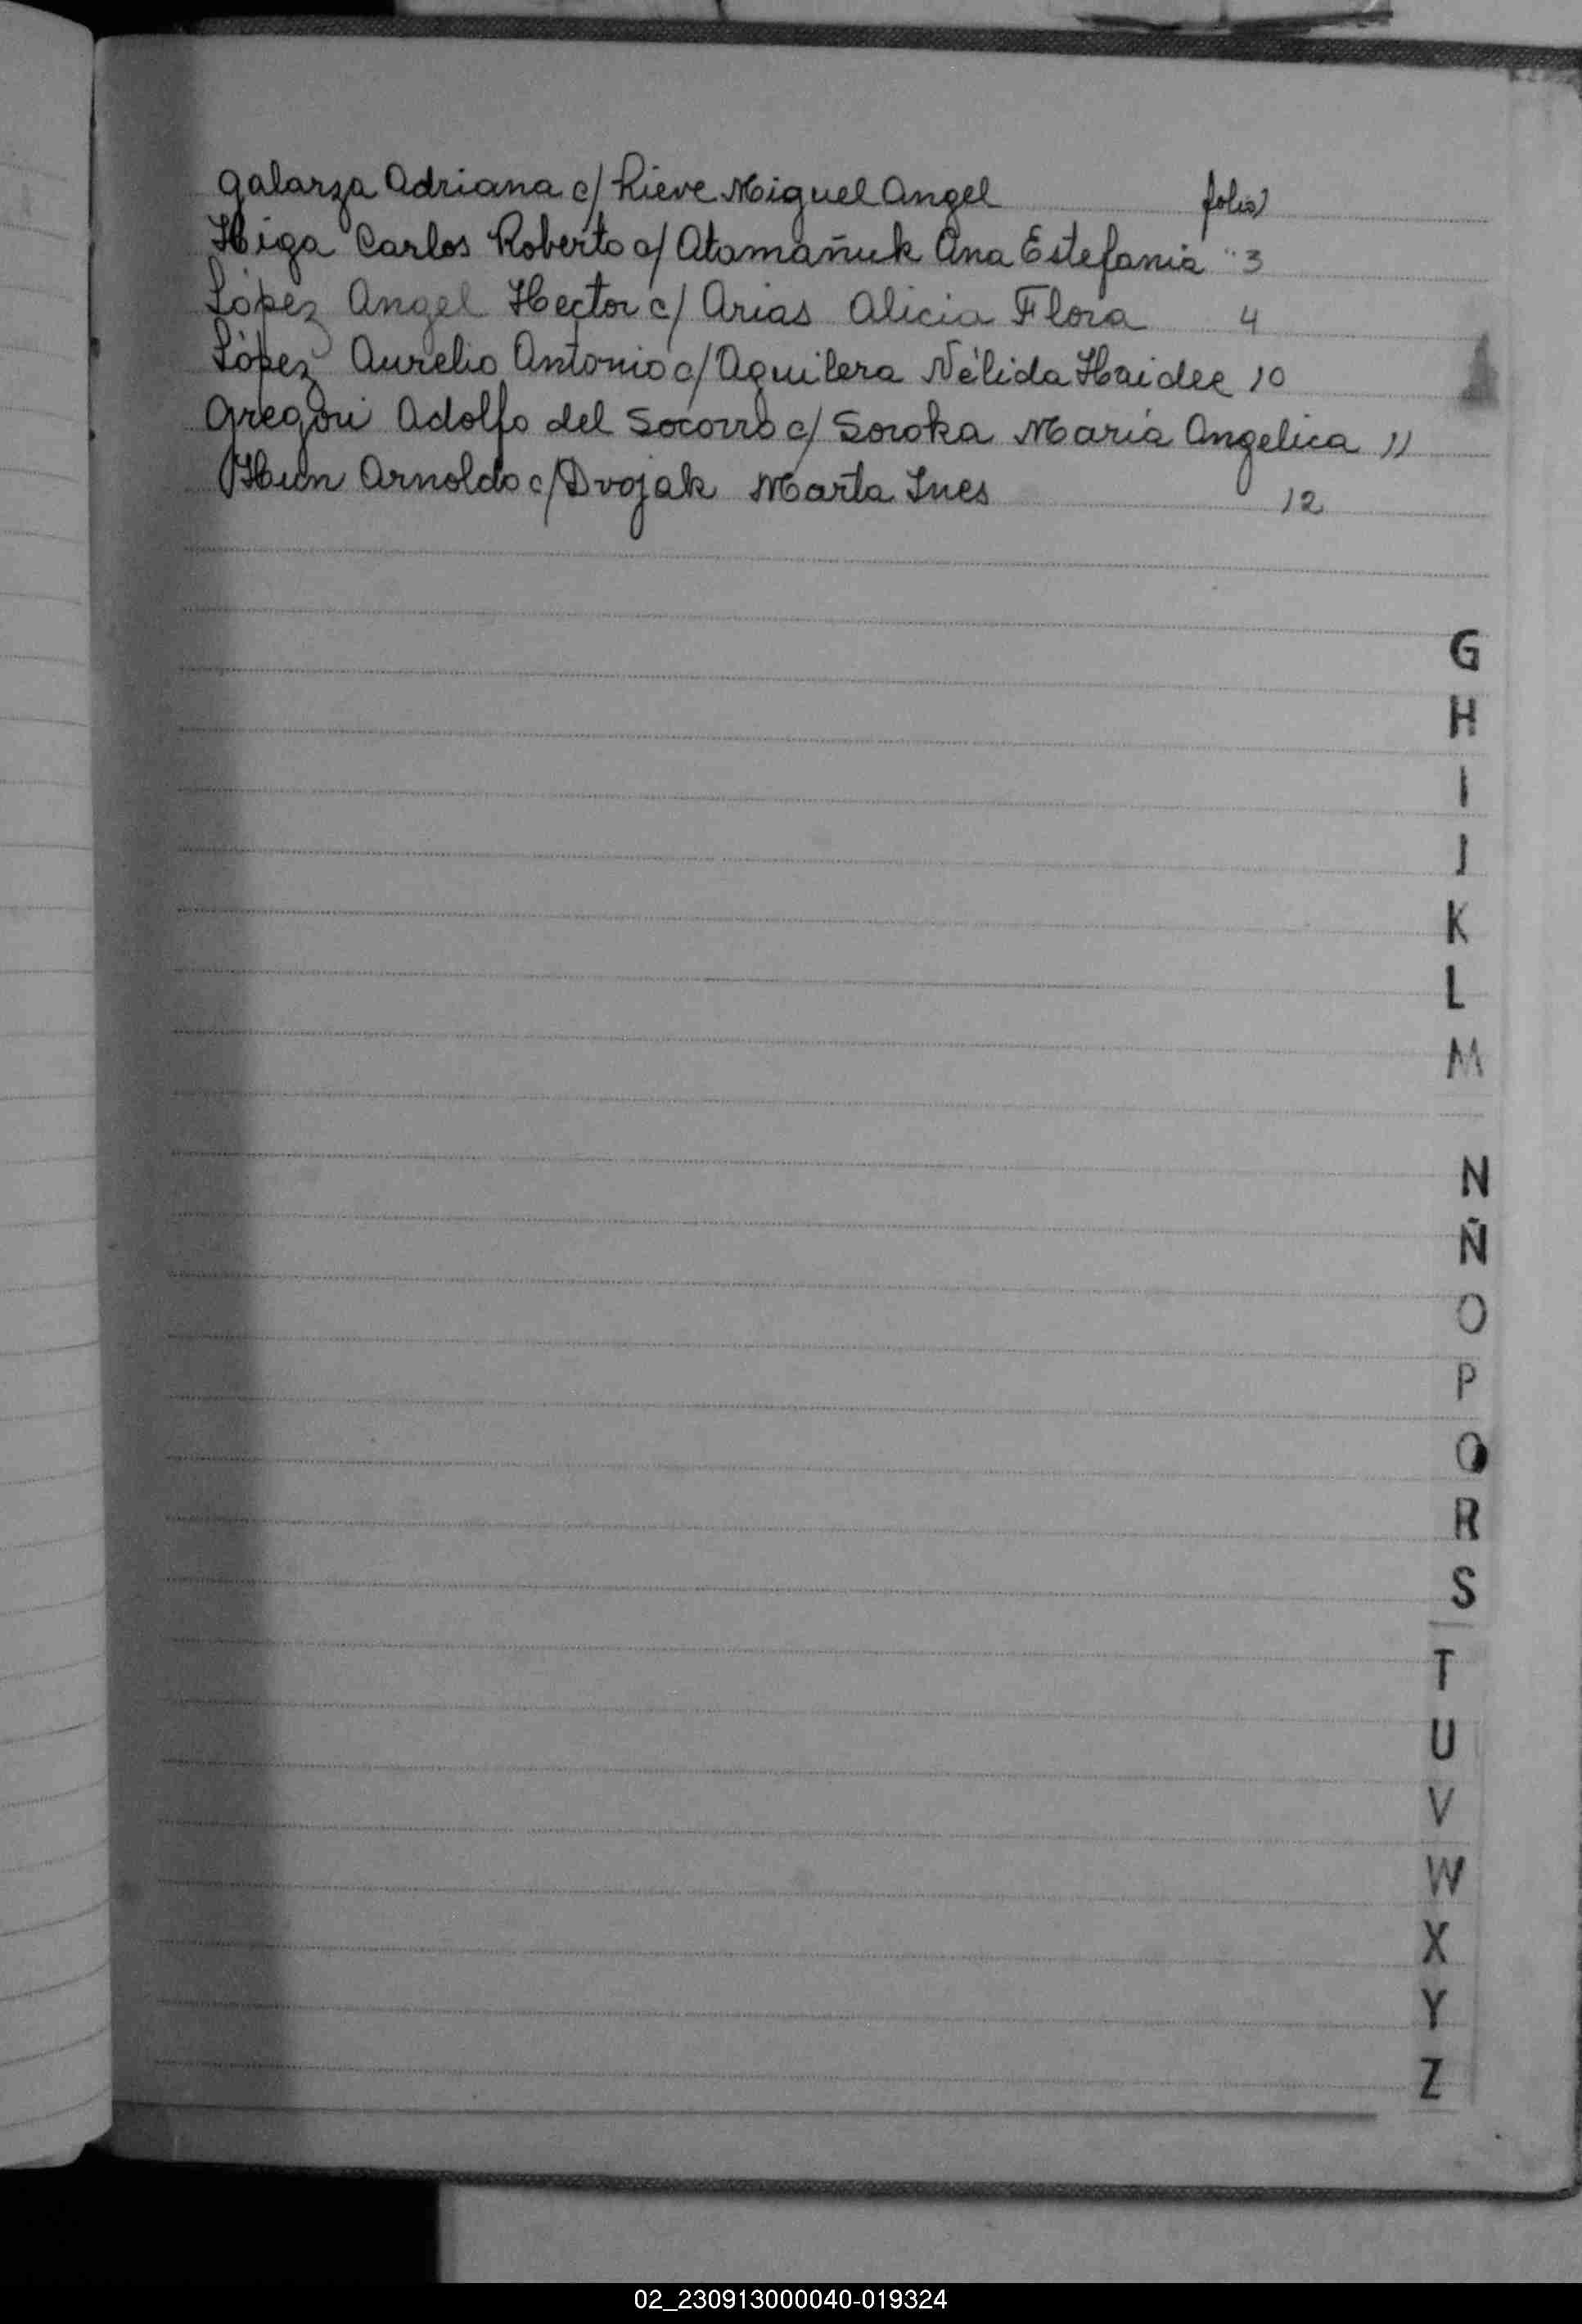 Galarza Adriana c/ Rieve Miguel Angel folio 1
Higa Carlos Roberto c/ Atamañuk Ana Estefania " 3
López Angel Hector c/ Arias Alicia Flora 4
López Aurelio Antonio c/ Aguilera Nélida Haidee 10
Gregori Adolfo del Socorro c/ Soroka María Angelica 11
Hun Arnoldo c/ Dvojak Marta Ines 12
G
H
I
J
K
L
M
N
Ñ
O
P
Q
R
S
T
U
V
W
X
Y
Z
02_230913000040-019324